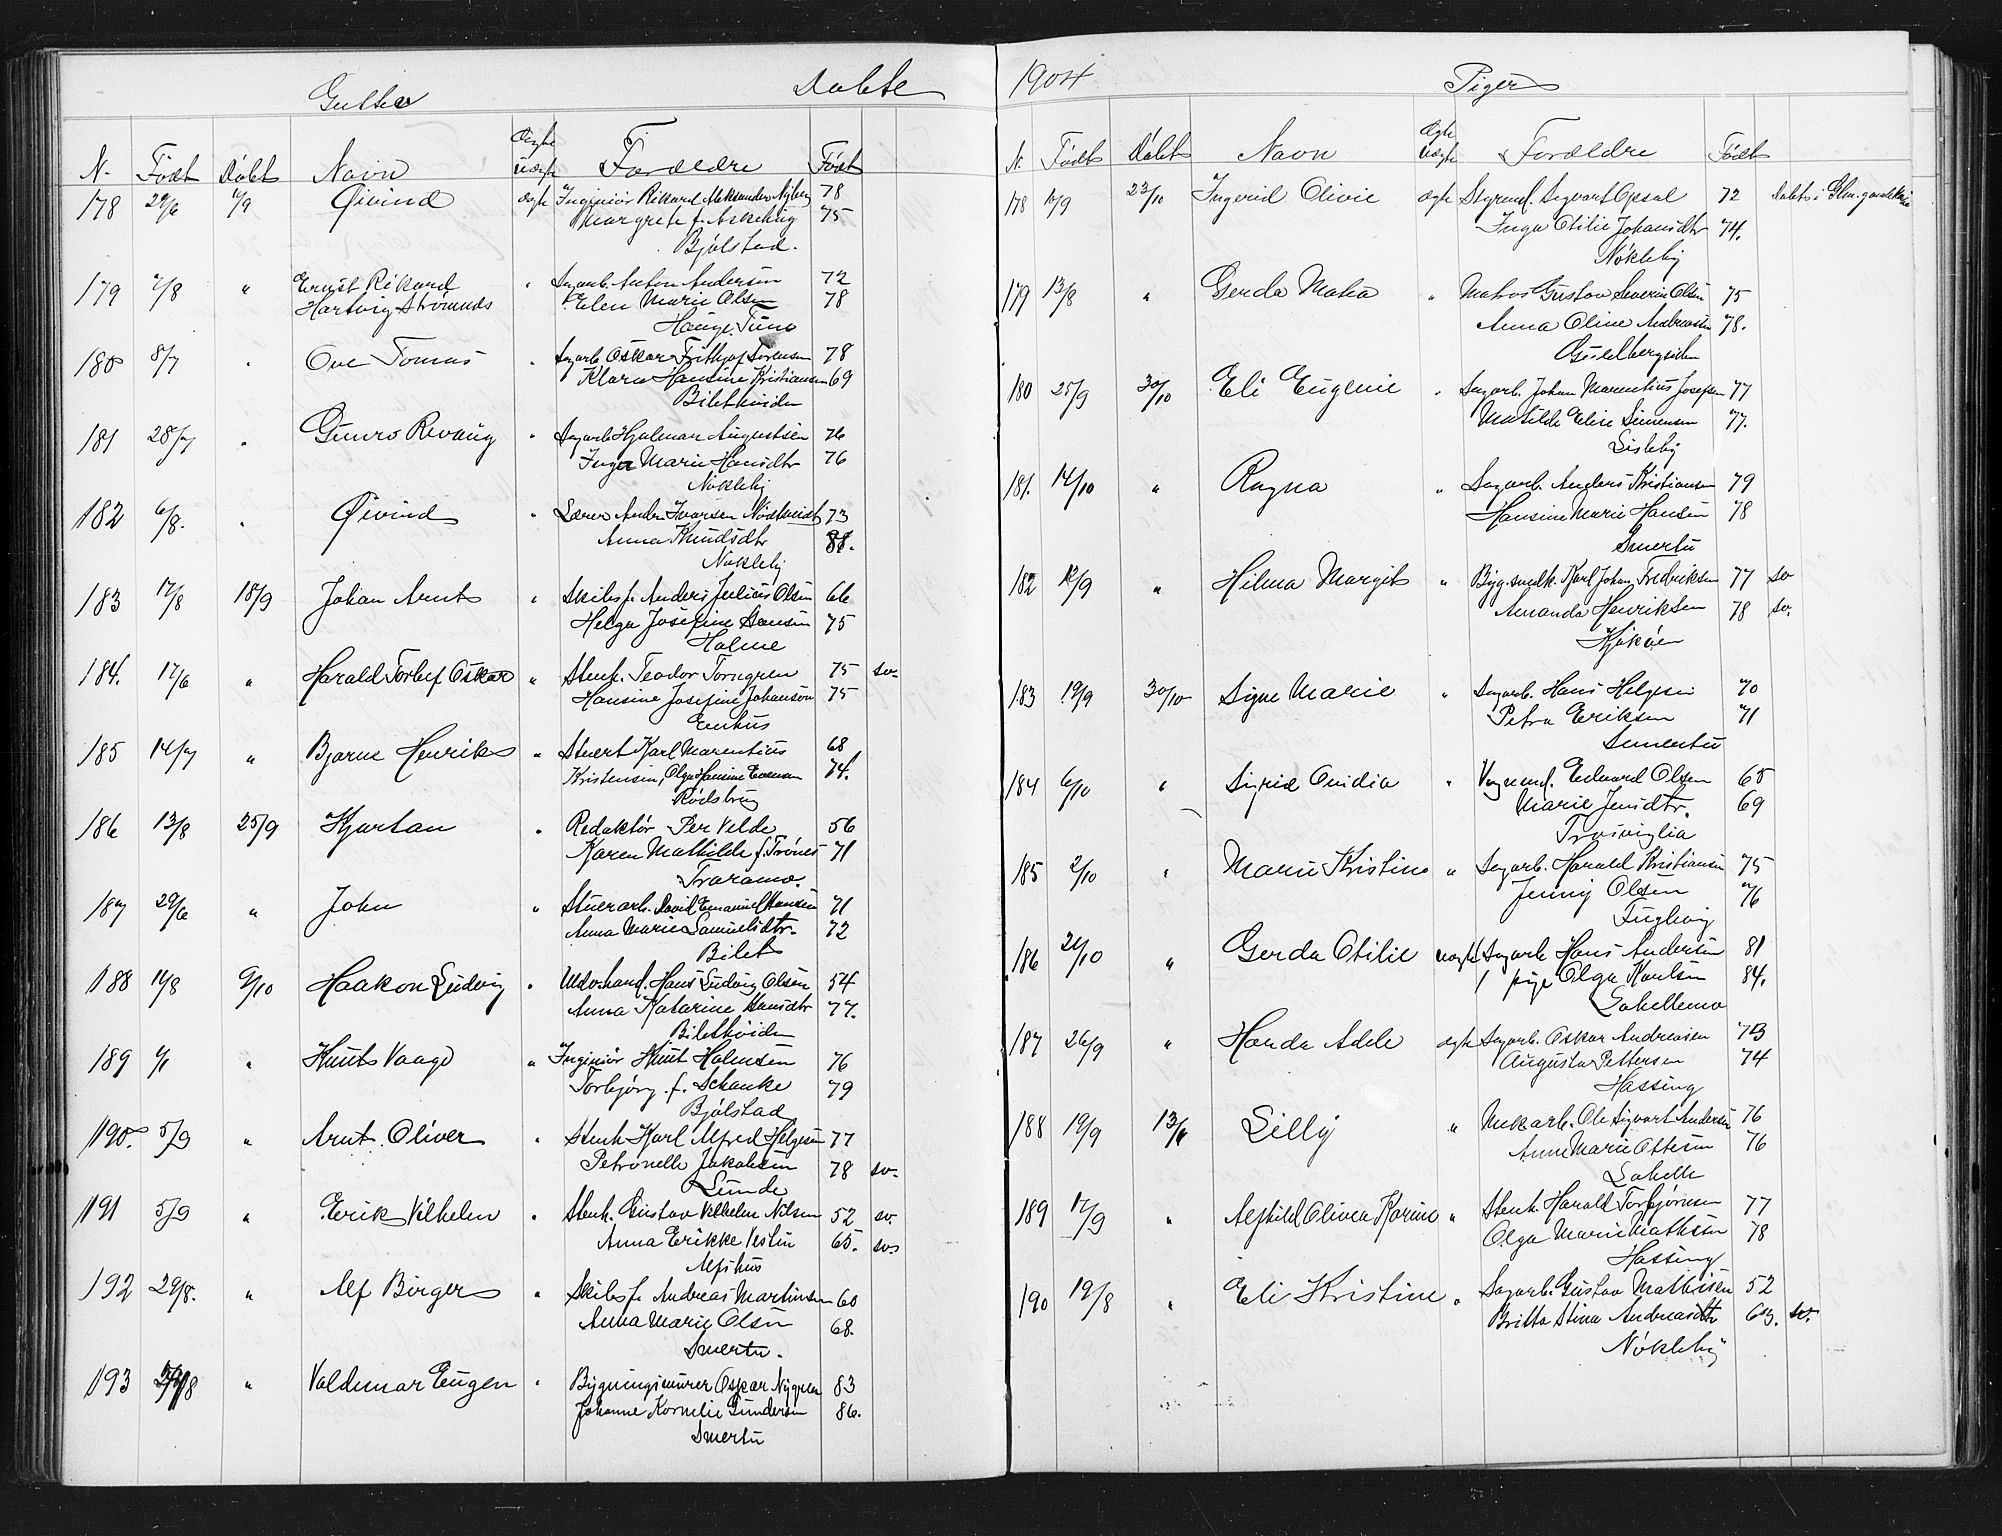 Gutter Døbte
N. Født Døbt Navn Ægte Uægte Forældre Født
178 29/6 11/9 Øivind ægte Ingeniør Rikard Aleksander Nyberg 78
Margrete f. Aschehug 75
Bjølstad.
179 2/8 " Ernst Rikard " Sagarb. Anton Andersen 72
Hartvig Strømnes Elen Marie Olsen 78
Hauge. Tune
180 8/7 " Ove Tomas " Sagarb Oskar Frithjof Sørensen 78
Klara Hansine Kristiansen 69
Biletkvisten
181 28/7 " Gunvo Revaug " Sagarb Hjalmar Augustsen 76
Inga Marie Hansdtr 76
Nøkleby
182 6/8. " Øivind " Lærer Andr. Ivarsen Nødtvedt 73
Anna Knudsdtr 88.
Nøkleby
183 17/8 18/9 Johan Arnt " Skibsf. Anders Julius Olsen 66
Helga Josefine Hansen 75
Holme
184. 17/6 " Harald Torlef Oskar " Stenh. Teodor Torngren 75 sv.
Hansine Josefine Johanson 75
Enhus
185 14/7 " Bjarne Henrik " Stuert Karl Marentius 68
Kristensen, Olga Hansine Evensen 74.
Rødsbrug
186 13/8 25/9 Kjartan " Redaktør Per Velde 56
Karen Mathilde f. Trønes 71
Traramo.
187 29/6 " John " Stuerarb. David Emanuel Hansen 71
Anna Marie Samuelsdtr. 72
Bilet
188 11/8 9/10 Haakon Ludvig " Udv.hand. Hans Ludvig Olsen 54
Anna Katarine Hansdtr 77.
Biletkvisten
189 6/1 " Knut Vaage " Ingeniør Knut Holmsen 76
Torbjørg f. Schanke 79
Bjølstad
190. 5/9 " Arnt Oliver " Stenh Karl Alfred Helgesen 77
Petronelle Jakobsen 78 sv.
Lunde
191 5/9 " Erik Vilhelm " Stenh. Gustav Vilhelm Nilsen 52 sv.
Anna Erikke Vestin 65. sv.
Alfshus
192 29/8. " Alf Birger " Skibsf. Andreas Martinsen 60
Anna Marie Olsen 68.
Smertu.
193 /8 " Valdemar Eugen " Bygningsmurer Oskar Nygren 83
Johanne Kornelie Gundersen 86.
Smertu
1904 Piger
N. Født Døbt Navn Ægte Uægte Forældre Født
178 10/9 23/10 Ingerid Olivie ægte Styrmd. Sigvart Opsal 72 Døbt i Glm. garde
Inga Otilie Johansdtr 74.
Nøkleby
179 13/8 " Gerda Maka " Matros Gustav Severin Olsen 75
Anna Oline Andreasen 78.
Guldbergsiden
180 25/9 30/10 Eli Eugenie " Sagarb. Johan Marentius Josefsen 77
Matilde Elise Simensen 77.
Lisleby
181. 14/10 " Ragna " Sagarb. Anders Kristiansen 79
Hansine Marie Hansen 78
Smertu
182 12/9 " Hilma Margit " Byg.snedk. Karl Johan Fredriksen 77 sv
Amanda Henriksen 78 sv.
Kjøkøen
183 19/9 30/10 Signe Marie " Sagarb. Hans Helgesen 70
Petra Eriksen 71
Smertu
184 6/10 " Sigrid Ovidia " Vognmd. Edvard Olsen 65
Marie Jensdtr. 69
Trosviglia
185 2/10 " Marie Kristine " Sagarb. Harald Kristiansen 75
Jenny Olsen 76
Fuglevig
186 21/10 " Gerda Otilie uægte Sagarb Hans Andersen 81
pige Olga Karlsen 84.
Labellemo
187 26/9 " Handa Adele ægte Sagarb. Oskar Andreasen 73
Augusta Pettersen 74
Hassing
188 19/9 13/11 Lilly " Mekarb. Ole Sigvart Andersen 76
Anne Marie Ottesen 76
Labelle
189 17/9 " Alfhild Olivea Karine " Stenh. Harald Torbjørnsen 77
Olga Marie Mathisen 78
Hassing
190 19/8 " Eli Kristine " Sagarb. Gustav Mathisen 52
Britta Stina Andreasdtr 63. sv.
Nøkleby